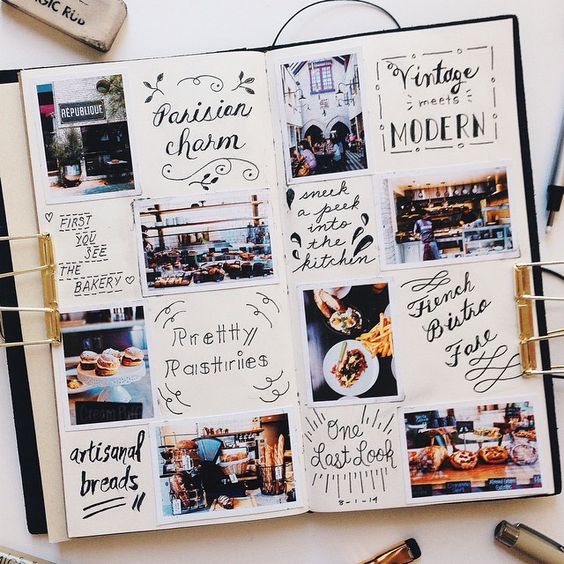 MAGIC RUB
RÉPUBLIQUE
Parisian
charm
FIRST
YOU
SEE
THE
BAKERY
Pretty
Pastries
Cream Puff
artisanal
breads
Vintage
meets
MODERN
sneek
a peek
into
the
kitchen
French
Bistro
Fare
One
Last Look
8-1-14